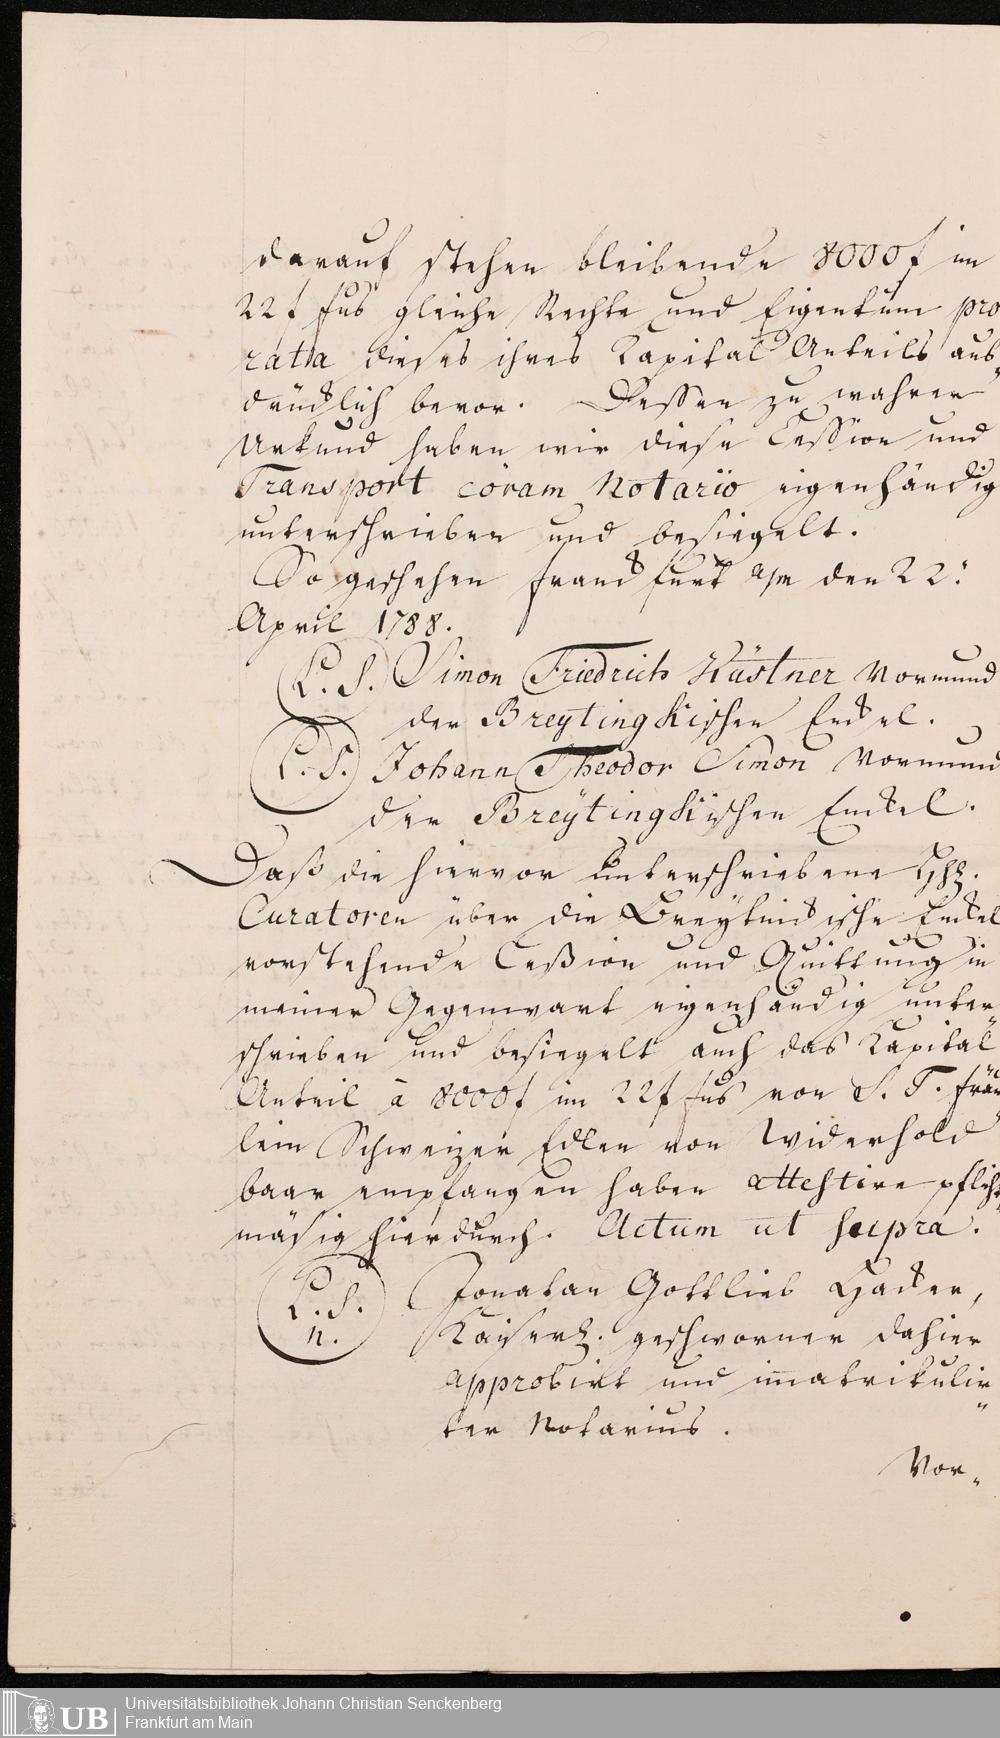 darauf stehen bleibende 8000f im
22f fus gleiche Rechte und Eigentum pro
ratta dieses ihres Kapital Anteils aus„
drücklich bevor. Dessen zu wahrer
Urkund haben wir diese Cession und
Transport coram Notario eigenhändig
unterschrieben und besiegelt.
So geschehen Franckfurt a/m den 22:
April 1788.
L. S. Simon Friedrich Küstner Vormund
der Breytingkischen Enckel.
L. S. Johann Theodor Simon Vormund
der Breytingkischen Enckel.
Daß die hiervor unterschriebene HHl.
Curatoren über die Breytinckische Enckel
vorstehende Ceßion und Quittung in
meiner Gegenwart eigenhändig unter„
schrieben und besiegelt auch das Kapital
Anteil à 8000f im 22f fus von S. T. Fräu„
lein Schweizer Edlen von Widerhold
baar empfangen haben attestire pflicht„
mäsig hierdurch. Actum ut supra.
L. S. Jonatan Gottlieb Hacker,
n. Kaiserl. geschworner dahier
approbirt und immatrikulir„
ter Notarius.
Vor„
Universitätsbibliothek Johann Christian Senckenberg
UB Frankfurt am Main